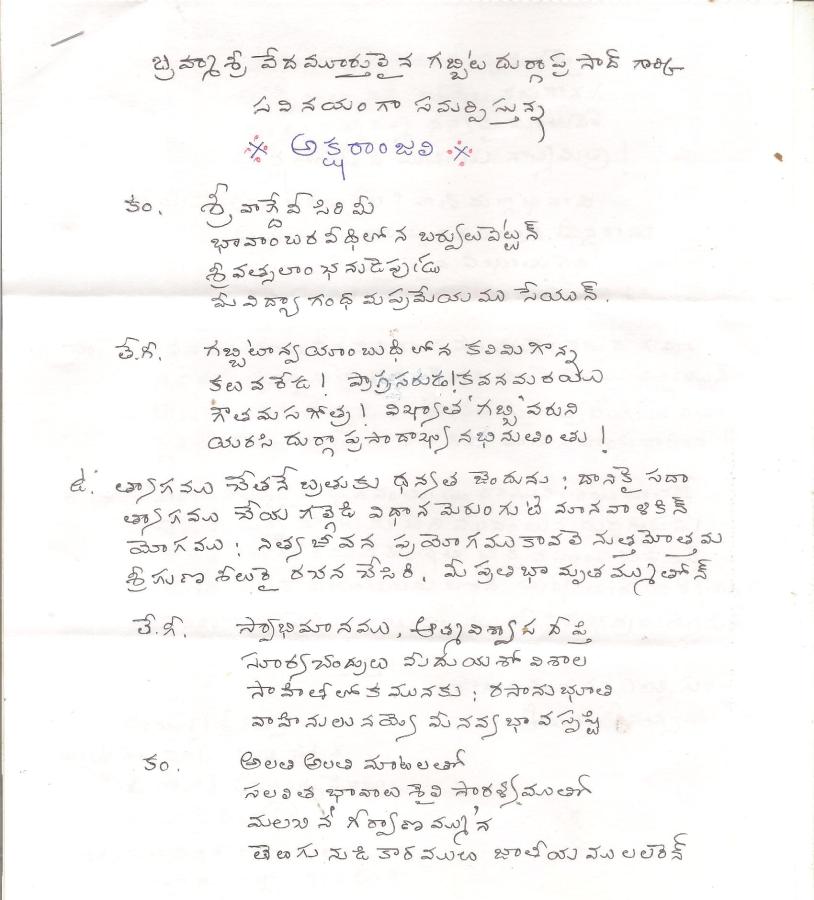 బ్రహ్మశ్రీ వేదమూర్తులైన గబ్బిట దుర్గాప్రసాద్ గార్కి
సవినయంగా సమర్పిస్తున్న
అక్షరాంజలి
కం. శ్రీ వాగ్దేవి సిరి మీ
భావాంబర వీధిలోన బర్వులువెట్టన్
శ్రీవత్సలాంఛనుడెపుడు
మీ విద్యా గంధ మప్రమేయము సేయున్.
తే.గీ. గబ్బిటాన్వయాంబుధిలోన కలిమిగొన్న
కలువ ఱేడ! ప్రాగ్రసరుడ! కవనమరయు
గౌతమసగోత్ర! విఖ్యాత 'గబ్బి'వరుని
యరసి దుర్గాప్రసాదాఖ్య నభినుతింతు!
ఉ. త్యాగము చేతనే బ్రతుకు ధన్యత జెందును; దానికై సదా
త్యాగము చేయ గల్గెడి విధాన మెరుంగుటె మానవాళికిన్
యోగము; నిత్యజీవన ప్రయోగము కావలె నుత్తమోత్తమ
శ్రీగుణ శీలురై రచన చేసిరి, మీ ప్రతిభామృతమ్ముతోన్
తే.గీ. స్వాభిమానము, ఆత్మవిశ్వాస దీప్తి
సూర్యచంద్రులు మీదు యశో విశాల
సాహితీలోకమునకు; రసానుభూతి
వాహినులునయ్యె మీ నవ్యభావ సృష్టి
కం. అలతి అలతి మాటలతో
సలలిత భావాలు శైలి సారళ్యముతో
మలఖిన గీర్వాణమ్మున
తెలుగు నుడికారములు జాతీయములలరెన్